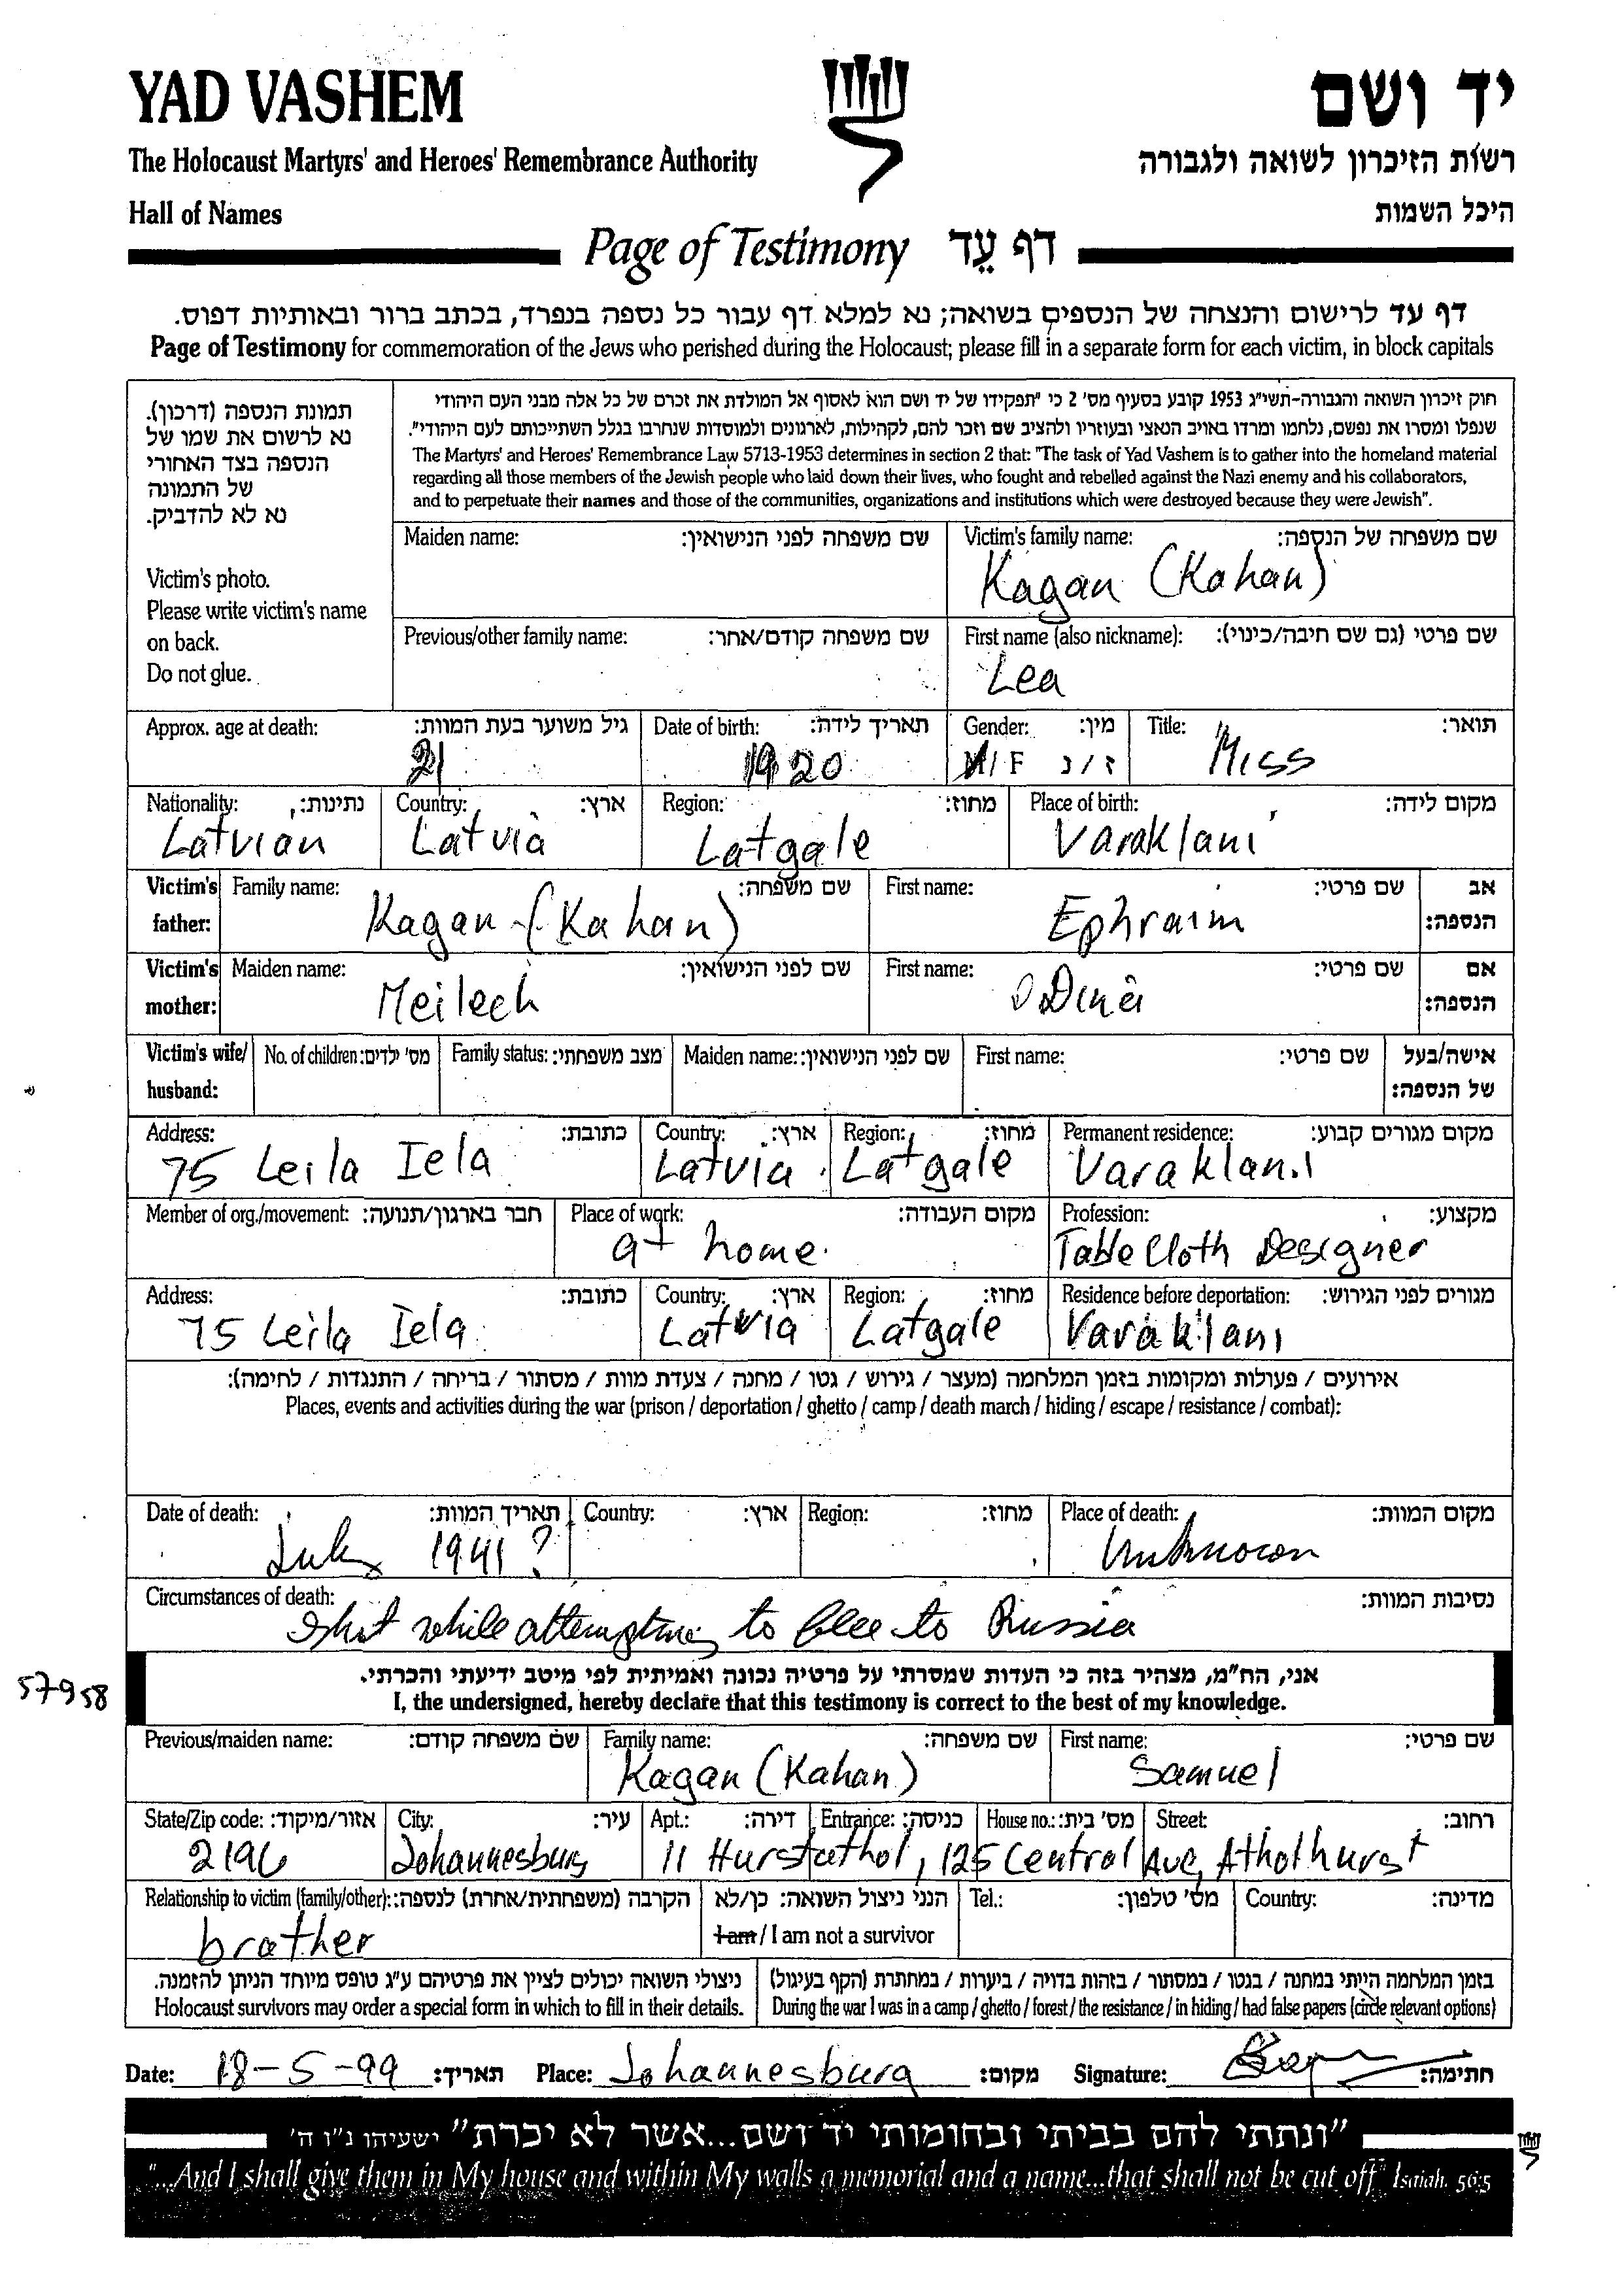 YAD VASHEM
יד ושם
The Holocaust Martyrs' and Heroes' Remembrance Authority
רשות הזיכרון לשואה ולגבורה
Hall of Names
היכל השמות
Page of Testimony דף עֵד
דף עד לרישום והנצחה של הנספים בשואה; נא למלא דף עבור כל נספה בנפרד, בכתב ברור ובאותיות דפוס.
Page of Testimony for commemoration of the Jews who perished during the Holocaust; please fill in a separate form for each victim, in block capitals
תמונת הנספה (דרכון).
נא לרשום את שמו של
הנספה בצד האחורי
של התמונה
נא לא להדביק.
Victim's photo.
Please write victim's name
on back.
Do not glue.
חוק זיכרון השואה והגבורה-תשי"ג 1953 קובע בסעיף מס' 2 כי "תפקידו של יד ושם הוא לאסוף אל המולדת את זכרם של כל אלה מבני העם היהודי
שנפלו ומסרו את נפשם, נלחמו ומרדו באויב הנאצי ובעוזריו ולהציב שם וזכר להם, לקהילות, לארגונים ולמוסדות שנחרבו בגלל השתייכותם לעם היהודי".
The Martyrs' and Heroes' Remembrance Law 5713-1953 determines in section 2 that: "The task of Yad Vashem is to gather into the homeland material
regarding all those members of the Jewish people who laid down their lives, who fought and rebelled against the Nazi enemy and his collaborators,
and to perpetuate their names and those of the communities, organizations and institutions which were destroyed because they were Jewish".
Maiden name: שם משפחה לפני הנישואין:
Victim's family name: שם משפחה של הנספה:
Kagan (Kahan)
Previous/other family name: שם משפחה קודם/אחר:
First name (also nickname): שם פרטי (גם שם חיבה/כינוי):
Lea
Approx. age at death: גיל משוער בעת המוות: Date of birth: תאריך לידה: Gender: מין: Title: תואר:
21 1920 M/F ז/נ Miss
Nationality: נתינות: Country: ארץ: Region: מחוז: Place of birth: מקום לידה:
Latvian Latvia Latgale Varaklani
Victim's father: Family name: שם משפחה: First name: שם פרטי: אב הנספה:
Kagan (Kahan) Ephraim
Victim's mother: Maiden name: שם לפני הנישואין: First name: שם פרטי: אם הנספה:
Meilech Dina
Victim's wife/ husband: No. of children: מס' ילדים: Family status: מצב משפחתי: Maiden name: שם לפני הנישואין: First name: שם פרטי: אישה/בעל של הנספה:
Address: כתובת: Country: ארץ: Region: מחוז: Permanent residence: מקום מגורים קבוע:
75 Leila Iela Latvia Latgale Varaklani
Member of org./movement: חבר בארגון/תנועה: Place of work: מקום העבודה: Profession: מקצוע:
at home Table Cloth Designer
Address: כתובת: Country: ארץ: Region: מחוז: Residence before deportation: מגורים לפני הגירוש:
75 Leila Iela Latvia Latgale Varaklani
אירועים / פעולות ומקומות בזמן המלחמה (מעצר / גירוש / גטו / מחנה / צעדת מוות / מסתור / בריחה / התנגדות / לחימה):
Places, events and activities during the war (prison / deportation / ghetto / camp / death march / hiding / escape / resistance / combat):
Date of death: תאריך המוות: Country: ארץ: Region: מחוז: Place of death: מקום המוות:
July 1941? Unknown
Circumstances of death: נסיבות המוות:
Shot while attempting to flee to Russia
אני, הח"מ, מצהיר בזה כי העדות שמסרתי על פרטיה נכונה ואמיתית לפי מיטב ידיעתי והכרתי.
57958
I, the undersigned, hereby declare that this testimony is correct to the best of my knowledge.
Previous/maiden name: שם משפחה קודם: Family name: שם משפחה: First name: שם פרטי:
Kagan (Kahan) Samuel
State/Zip code: אזור/מיקוד: City: עיר: Apt.: דירה: Entrance: כניסה: House no.: מס' בית: Street: רחוב:
2196 Johannesburg 11 Hurstathol, 125 Central Ave, Atholhurst
Relationship to victim (family/other): הקרבה (משפחתית/אחרת) לנספה: הנני ניצול השואה: כן/לא Tel.: מס' טלפון: Country: מדינה:
brother I am / I am not a survivor
ניצולי השואה יכולים לציין את פרטיהם ע"ג טופס מיוחד הניתן להזמנה.
Holocaust survivors may order a special form in which to fill in their details.
בזמן המלחמה הייתי במחנה / בגטו / במסתור / בזהות בדויה / ביערות / במחתרת (הקף בעיגול)
During the war I was in a camp / ghetto / forest / the resistance / in hiding / had false papers (circle relevant options)
Date: 18-5-99 תאריך: Place: Johannesburg מקום: Signature: חתימה:
"ונתתי להם בביתי ובחומותי יד ושם...אשר לא יכרת" ישעיהו נ"ו ה'
"...And I shall give them in My house and within My walls a memorial and a name...that shall not be cut off" Isaiah. 56:5